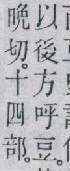 以後方呼豆。
晚切。十四部。